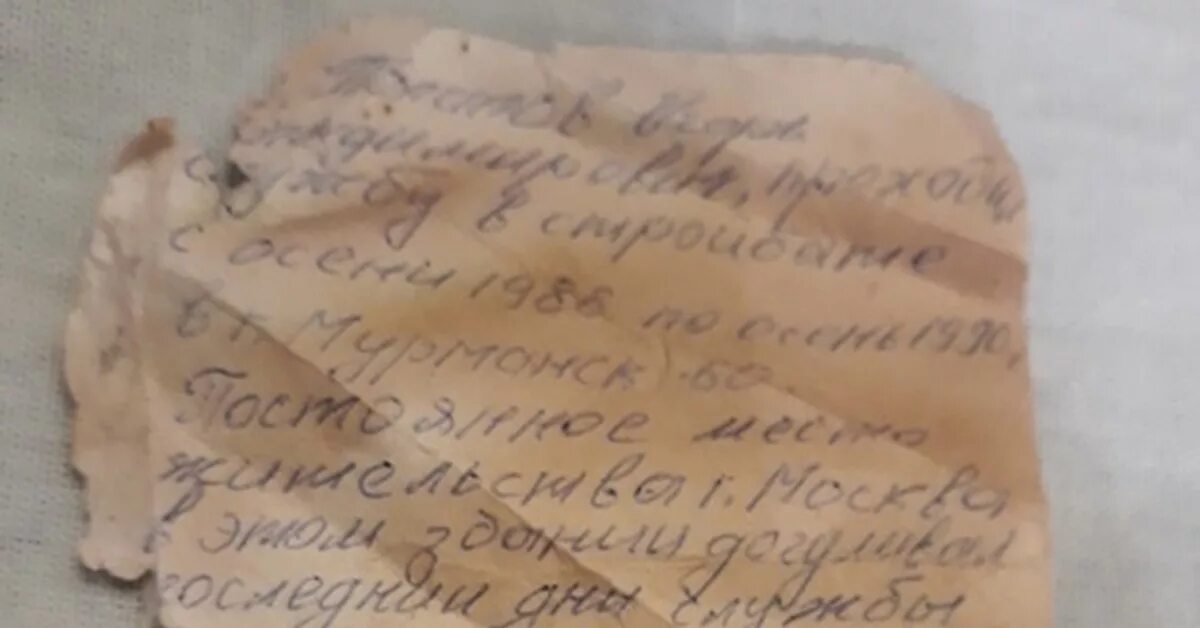 Игорь
Владимирович, проходил
службу в стройбате
с осени 1988 по осень 1990,
в г. Мурманск-60.
Постоянное место
жительства г. Москва
в этом здании догуливал
последнии дни службы